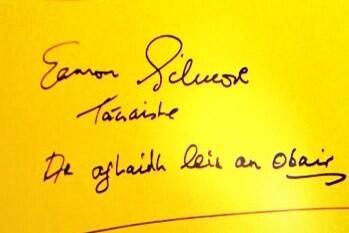 Eamon Gilmore
Tánaiste
De aghaidh leis an obair